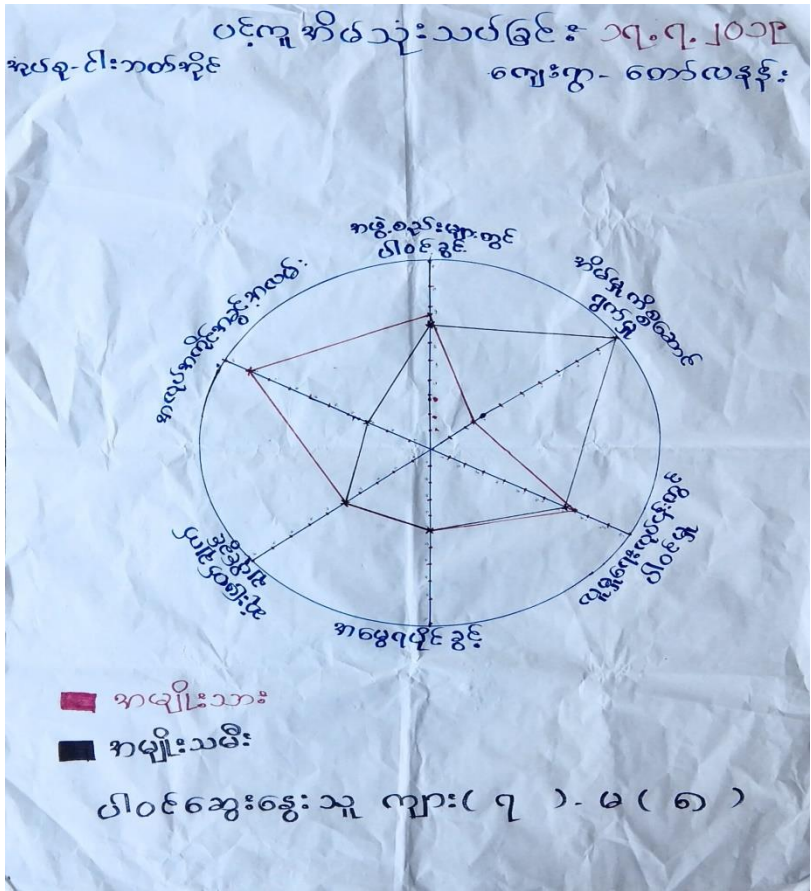 ပင့်ကူအိမ်သုံးသပ်ခြင်း ၁၇.၇.၂၀၁၉
အုပ်စု-ငါးဘတ်အိုင်
ကျေးရွာ- တော်လနန်း
အဖွဲ့စည်းများတွင်
ပါဝင်ခွင့်
အိမ်မှုကိစ္စဆောင်
ရွက်မှု
ပါဝင်မှု
အမွေရပိုင်ခွင့်
ဆုံးဖြတ်ချက်
ချပိုင်ခွင့်
အလုပ်အကိုင်အခွင့်အလမ်း
အမျိုးသား
အမျိုးသမီး
ပါဝင်ဆွေးနွေးသူ ကျား(၇)-မ(၈)